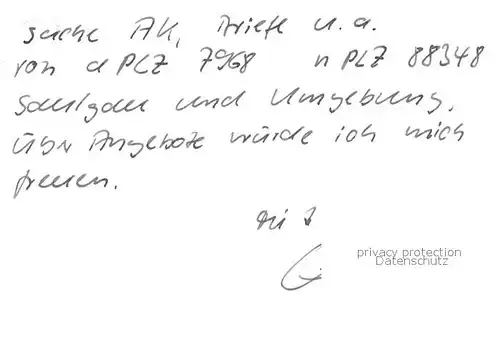 suche AK, Briefe u.a.
von a PLZ 7968 n PLZ 88348
Saulgau und Umgebung.
Über Angebote würde ich mich
freuen.
privacy protection
Datenschutz